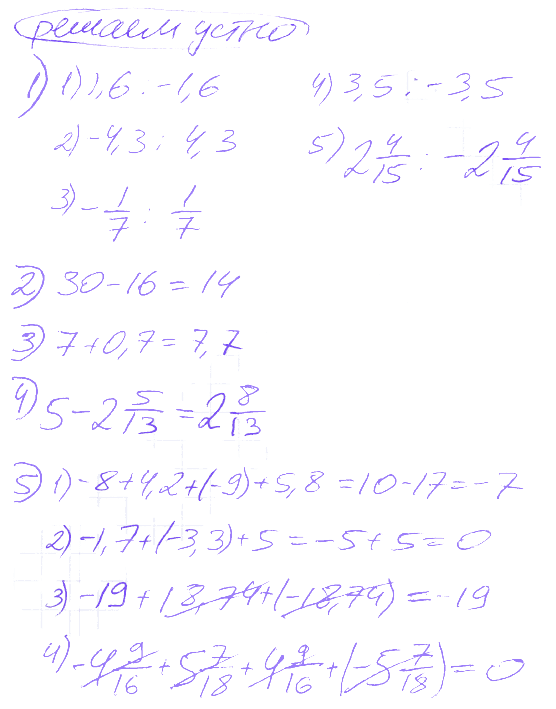 решаем устно
1) 1) 1,6 : -1,6
4) 3,5 : -3,5
2) -4,3 : 4,3
5) 2 4/15 : -2 4/15
3) -1/7 : 1/7
2) 30 - 16 = 14
3) 7 + 0,7 = 7,7
4) 5 - 2 5/13 = 2 8/13
5) 1) -8 + 4,2 + (-9) + 5,8 = 10 - 17 = -7
2) -1,7 + (-3,3) + 5 = -5 + 5 = 0
3) -19 + 18,74 + (-18,74) = -19
4) -4 9/16 + 5 7/18 + 4 9/16 + (-5 7/18) = 0